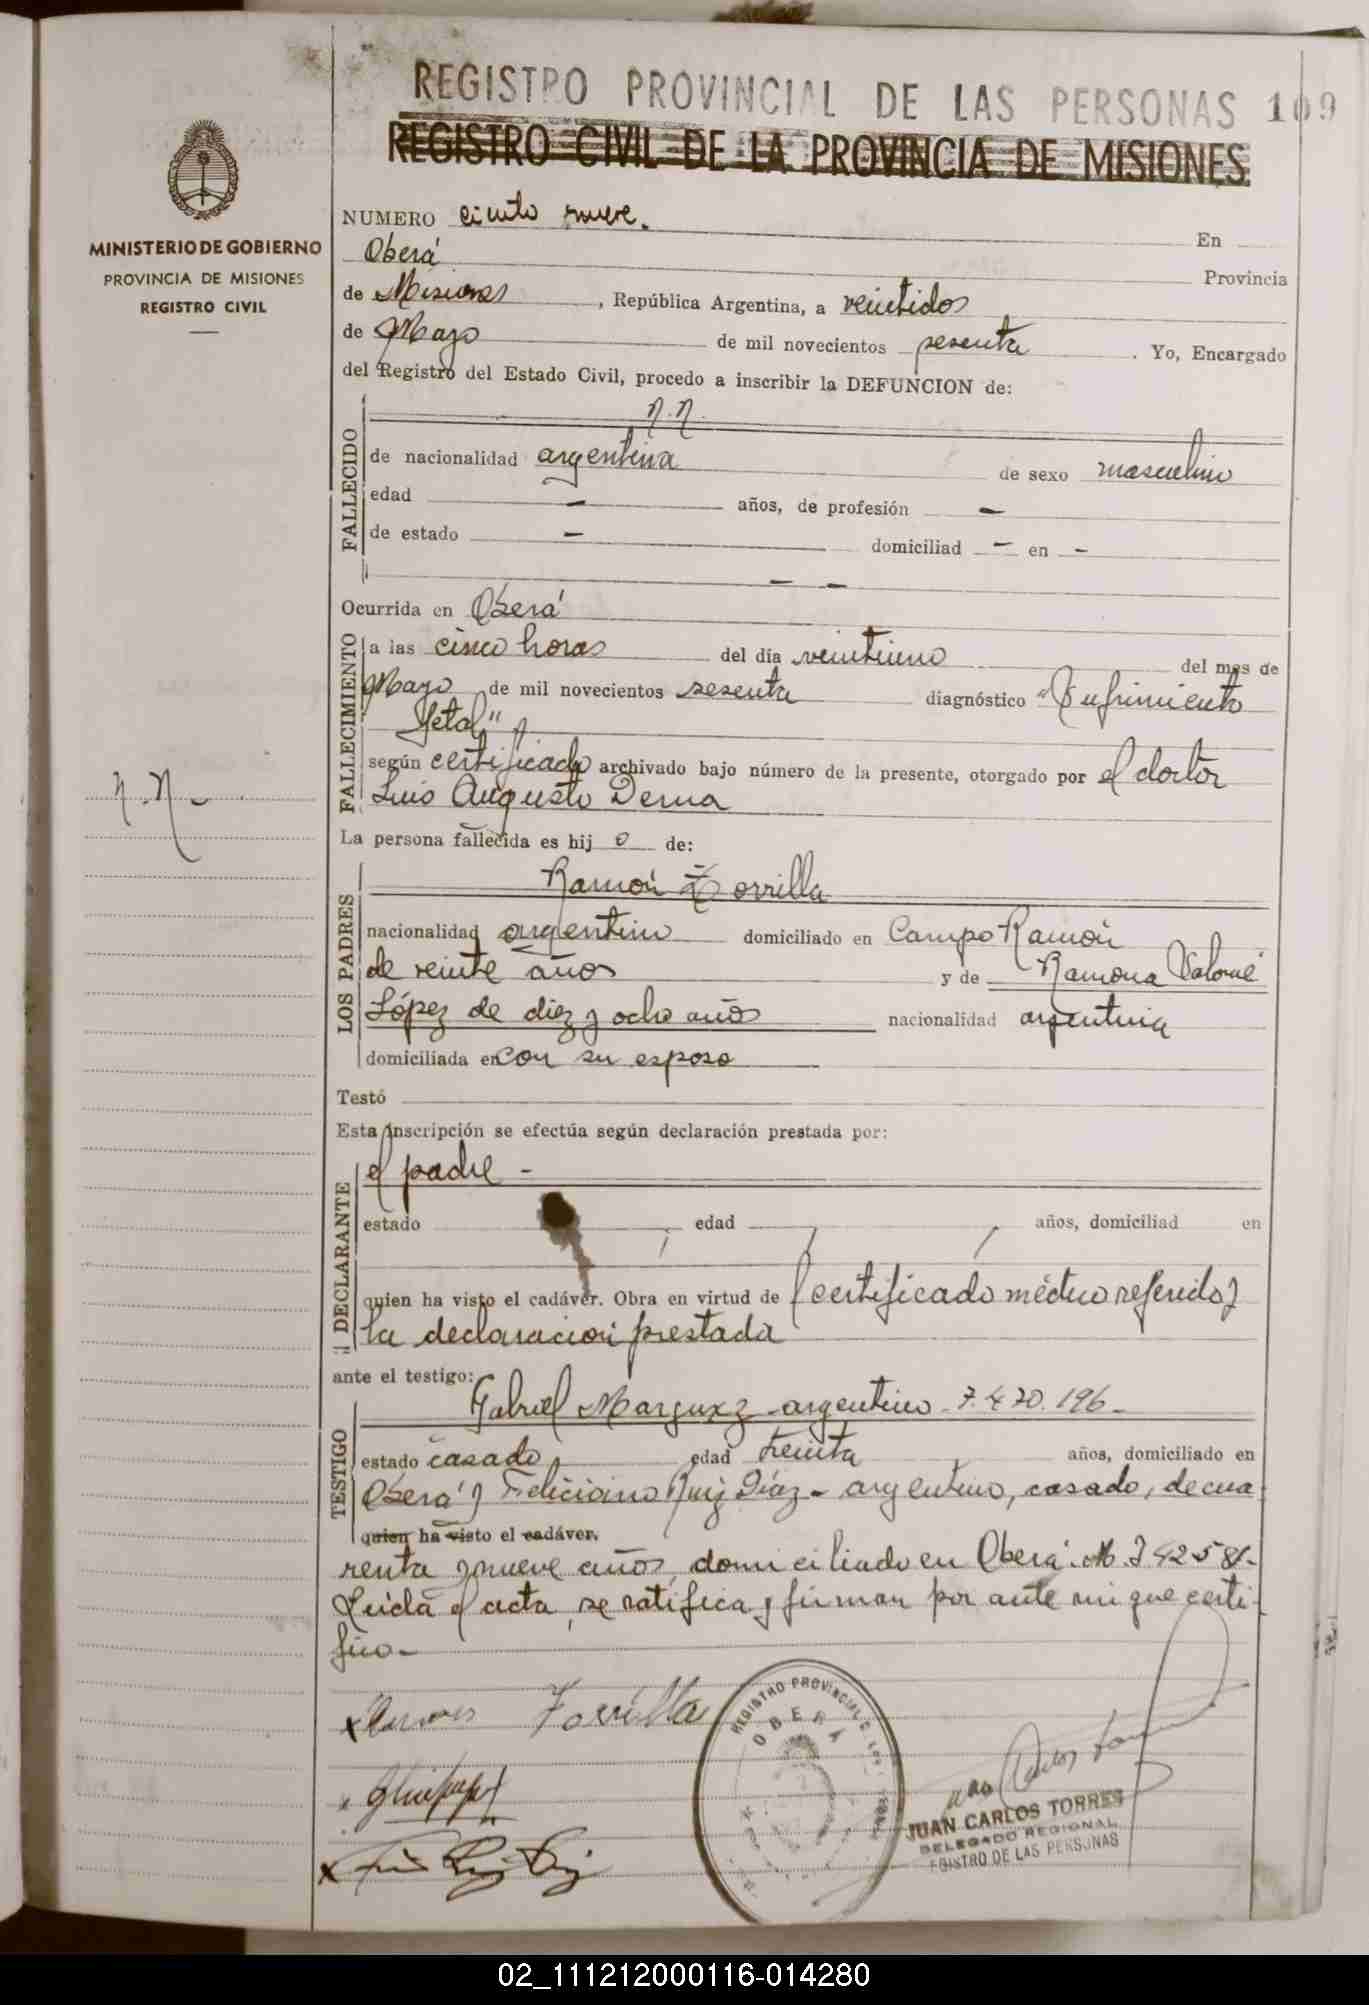 REGISTRO PROVINCIAL DE LAS PERSONAS 109
REGISTRO CIVIL DE LA PROVINCIA DE MISIONES
MINISTERIO DE GOBIERNO
PROVINCIA DE MISIONES
REGISTRO CIVIL
NUMERO ciento nueve. En
Oberá Provincia
de Misiones, República Argentina, a veintidos
de Mayo de mil novecientos sesenta. Yo, Encargado
del Registro del Estado Civil, procedo a inscribir la DEFUNCION de:
N.N.
FALLECIDO
de nacionalidad argentina de sexo masculino
edad — años, de profesión —
de estado — domiciliad — en —
— —
Ocurrida en Oberá
FALLECIMIENTO
a las cinco horas del día veintiuno del mes de
Mayo de mil novecientos sesenta diagnóstico "Sufrimiento
fetal"
según certificado archivado bajo número de la presente, otorgado por el doctor
Luis Augusto Derna
N.N.-
La persona fallecida es hij o de:
LOS PADRES
Ramón Zorrilla
nacionalidad argentino domiciliado en Campo Ramón
de veinte años y de Ramona Salomé
López de diez y ocho años nacionalidad argentina
domiciliada en con su esposo
Testó
Esta inscripción se efectúa según declaración prestada por:
DECLARANTE
el padre -
estado , edad años, domiciliad en
quien ha visto el cadáver. Obra en virtud de certificado médico referido y
la declaración prestada
ante el testigo:
TESTIGO
Gabriel Marquez argentino 7.470.196-
estado casado, edad treinta años, domiciliado en
Oberá y Feliciano Ruiz Díaz - argentino, casado, de cua
quien ha visto el cadáver.
renta y nueve años, domiciliado en Oberá. M.
Leida el acta, se ratifica y firman por ante mi que certi-
fico-
Zorrilla
REGISTRO PROVINCIAL DE LAS PERSONAS
OBERÁ
JUAN CARLOS TORRES
DELEGADO REGIONAL
REGISTRO DE LAS PERSONAS
02_111212000116-014280